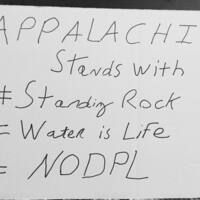 APPALACHI
Stands with
# Standing Rock
= Water is Life
= NODPL